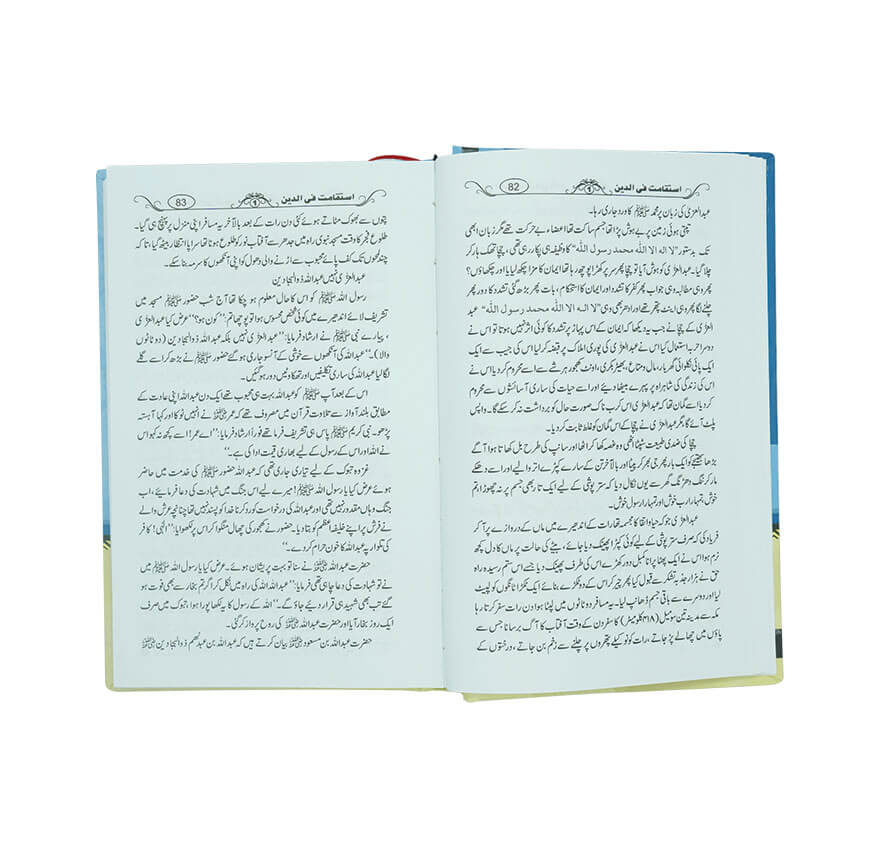 82
1
استقامت فی الدین
عبدالعزیٰ کی زبان پر محمد ﷺ کا ورد جاری رہا۔
تپتی ہوئی زمین پر بے ہوش پڑا تھا جسم ساکت تھا اعضاء بے حرکت تھے مگر زبان ابھی
تک بدستور ”لا الہ الا اللہ محمد رسول اللہ“ کا وظیفہ ہی پکار رہی تھی، چچا تھک ہار کر
چلا گیا۔ عبدالعزیٰ کو ہوش آیا تو چچا پھر سر پر کھڑا پوچھ رہا تھا ایمان کا مزا چکھ لیا یا اور چکھاؤں؟
پھر وہی مطالبہ وہی جواب پھر کفر کا تشدد اور ایمان کا استحکام، بات پھر بڑھ گئی تشدد کا دور پھر
چلنے لگا پھر وہی اینٹ پتھر تھے اور ادھر بھی وہی ”لا الہ الا اللہ محمد رسول اللہ“ عبد
العزیٰ کے چچا نے جب یہ دیکھا کہ ایمان کے اس پہاڑ پر تشدد کا کوئی اثر نہیں ہوتا تو اس نے
دوسرا حربہ استعمال کیا اس نے عبدالعزیٰ کی پوری املاک پر قبضہ کر لیا اس کی جیب سے ایک
ایک پائی نکلوائی گھر بار، مال و متاع، بھیڑ بکری، اونٹ کھجور ہر شے سے اسے محروم کر دیا اس نے
اس کی زندگی کی شاہراہ پر پہرے بیٹھا دیئے اور اسے حیات کی ساری آسائشوں سے محروم
کر دیا اسے گمان تھا کہ عبدالعزیٰ اس کرب ناک صورت حال کو برداشت نہ کر سکے گا۔ واپس
پلٹ آئے گا مگر عبدالعزیٰ نے چچا کے اس گمان کو غلط ثابت کر دیا۔
چچا کی ضدی طبیعت سپٹا اٹھی وہ غصہ کھا کر اٹھا اور سانپ کی طرح بل کھاتا ہوا آگے
بڑھا بھتیجے کو ایک بار پھر جی بھر کر پیٹا اور بالآخر تن کے سارے کپڑے اتروا لیے اور اسے دھکے
مار کر ننگ دھڑنگ گھر سے یوں نکال دیا کہ ستر پوشی کے لیے ایک تار بھی جسم پر نہ چھوڑا ہم
خوش، تمہارا رب خوش اور تمہارا رسول خوش۔
عبدالعزیٰ جو کہ حیا و اتقا کا مجسمہ تھا رات کے اندھیرے میں ماں کے دروازے پر آ کر
فریاد کی کہ صرف ستر پوشی کے لیے کوئی کپڑا پھینک دیا جائے، بیٹے کی حالت پر ماں کا دل کچھ
نرم ہوا اس نے ایک پھٹا پرانا کمبل دور کھڑے اس کی طرف پھینک دیا جسے اس ستم رسیدہ راہ
حق نے ہزار جذبہ تشکر سے قبول کیا پھر چیر کر اس کے دو ٹکڑے بنائے ایک ٹکڑا ٹانگوں کو لپیٹ
لیا اور دوسرے سے باقی جسم ڈھانپ لیا۔ یہ مسافر دو ٹاٹوں میں لپٹا ہوا دن رات سفر کرتا رہا
مکہ سے مدینہ تین سو میل (۴۱۸ کلومیٹر) کا سفر دن کے وقت آفتاب کا آگ برسانا جس سے
پاؤں میں چھالے پڑ جاتے، رات کو نوکیلے پتھروں پر چلنے سے زخم بن جاتے، درختوں کے
83
1
استقامت فی الدین
پتوں سے بھوک مٹاتے ہوئے کئی دن رات کے بعد بالآخر یہ مسافر اپنی منزل پر پہنچ ہی گیا۔
طلوع فجر کا وقت مسجد نبوی راہ میں جدھر سے آفتاب نور کو طلوع ہونا تھا سراپا انتظار بیٹھ گیا، تاکہ
چند لمحوں تک کف پائے محبوب سے اڑنے والی دھول کو اپنی آنکھوں کا سرمہ بنا سکے۔
عبدالعزیٰ نہیں عبداللہ ذوالبجادین
رسول اللہ ﷺ کو اس کا حال معلوم ہو چکا تھا آج شب حضور ﷺ مسجد میں
تشریف لائے اندھیرے میں کوئی شخص محسوس ہوا تو پوچھا تم: ”کون ہو؟“ عرض کیا عبدالعزیٰ
، پیارے نبی ﷺ نے ارشاد فرمایا: ”عبدالعزیٰ نہیں بلکہ عبداللہ ذوالبجادین (دو ٹاٹوں
والا)۔“ عبداللہ کی آنکھوں سے خوشی کے آنسو جاری ہو گئے حضور ﷺ نے بڑھ کر اسے گلے
لگا لیا عبداللہ کی ساری تکلیفیں اور تھکاوٹیں دور ہو گئیں۔
اس کے بعد آپ ﷺ کو عبداللہ بہت ہی محبوب تھے ایک دن عبداللہ اپنی عادت کے
مطابق بلند آواز سے تلاوت قرآن میں مصروف تھے کہ عمرؓ نے انہیں ٹوکا اور کہا آہستہ
پڑھو۔ نبی کریم ﷺ پاس ہی تشریف فرما تھے فوراً ارشاد فرمایا: ”اے عمر! اسے کچھ نہ کہو اس
نے اللہ اور اس کے رسول کے لیے بھاری قیمت ادا کی ہے۔“
غزوہ تبوک کے لیے تیاری جاری تھی کہ عبداللہ حضور ﷺ کی خدمت میں حاضر
ہوئے عرض کیا یا رسول اللہ ﷺ! میرے لیے اس جنگ میں شہادت کی دعا فرمایئے، اب
جنگ وہاں مقدور نہیں تھی اور عبداللہ کی درخواست کو رد کرنا خدا کو پسند نہیں تھا چنانچہ عرش والے
نے فرش پر اپنے خلیفہ اعظم کو بتا دیا۔ حضور نے کھجور کی چھال منگوا کر اس پر لکھوایا: ”الٰہی! کافر
کی تلوار پر عبداللہ کا خون حرام کر دے۔“
حضرت عبداللہ ؓ نے سنا تو بہت پریشان ہوئے۔ عرض کیا یا رسول اللہ ﷺ میں
نے تو شہادت کی دعا چاہی تھی فرمایا: ”عبداللہ اللہ کی راہ میں نکل کر اگر تم بخار سے بھی فوت ہو
گئے تب بھی شہید ہی قرار دیئے جاؤ گے۔“ اللہ کے رسول کا یہ کہا پورا ہوا، تبوک میں صرف
ایک روز بخار آیا اور حضرت عبداللہ ؓ کی روح پرواز کر گئی۔
حضرت عبداللہ بن مسعود ؓ بیان کرتے ہیں کہ عبداللہ بن عبدنھم ذوالبجادین ؓ